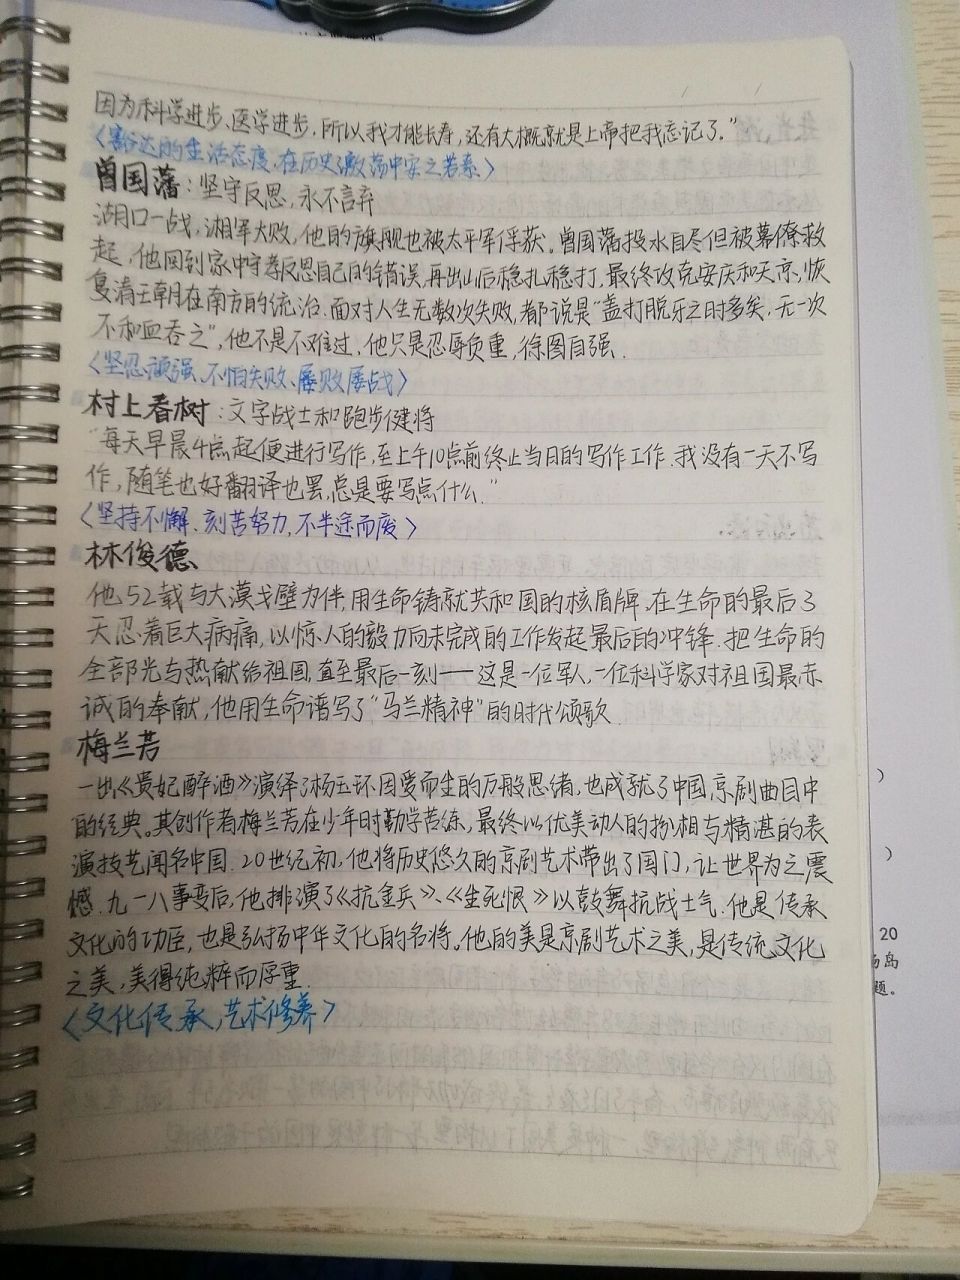 因为科学进步、医学进步，所以我才能长寿，还有大概就是上帝把我忘记了。”
〈豁达的生活态度，在历史激荡中安之若素〉
曾国藩：坚守反思，永不言弃
湖口一战，湘军大败，他的旗舰也被太平军俘获。曾国藩投水自尽但被幕僚救
起，他回到家中守孝反思自己的错误，再出山后稳扎稳打，最终攻克安庆和天京，恢
复清王朝在南方的统治。面对人生无数次失败，都说是“盖打脱牙之时多矣，无一次
不和血吞之”，他不是不难过，他只是忍辱负重，徐图自强．
〈坚忍顽强、不怕失败、屡败屡战〉
村上春树：文字战士和跑步健将
“每天早晨4点起便进行写作，至上午10点前终止当日的写作工作．我没有一天不写
作，随笔也好翻译也罢，总是要写点什么．”
〈坚持不懈、刻苦努力，不半途而废〉
林俊德
他52载与大漠戈壁为伴，用生命铸就共和国的核盾牌．在生命的最后3
天忍着巨大病痛，以惊人的毅力向未完成的工作发起最后的冲锋．把生命的
全部光与热献给祖国，直至最后一刻——这是一位军人，一位科学家对祖国最赤
诚的奉献，他用生命谱写了“马兰精神”的时代颂歌．
梅兰芳
一出《贵妃醉酒》演绎了杨玉环因爱而生的万般思绪，也成就了中国京剧曲目中
的经典。其创作者梅兰芳在少年时勤学苦练，最终以优美动人的扮相与精湛的表
演技艺闻名中国．20世纪初，他将历史悠久的京剧艺术带出了国门，让世界为之震
憾．九一八事变后，他排演了《抗金兵》、《生死恨》以鼓舞抗战士气．他是传承
文化的功臣，也是弘扬中华文化的名将。他的美是京剧艺术之美，是传统文化
之美，美得纯粹而厚重．
〈文化传承，艺术修养〉
20
岛
题。